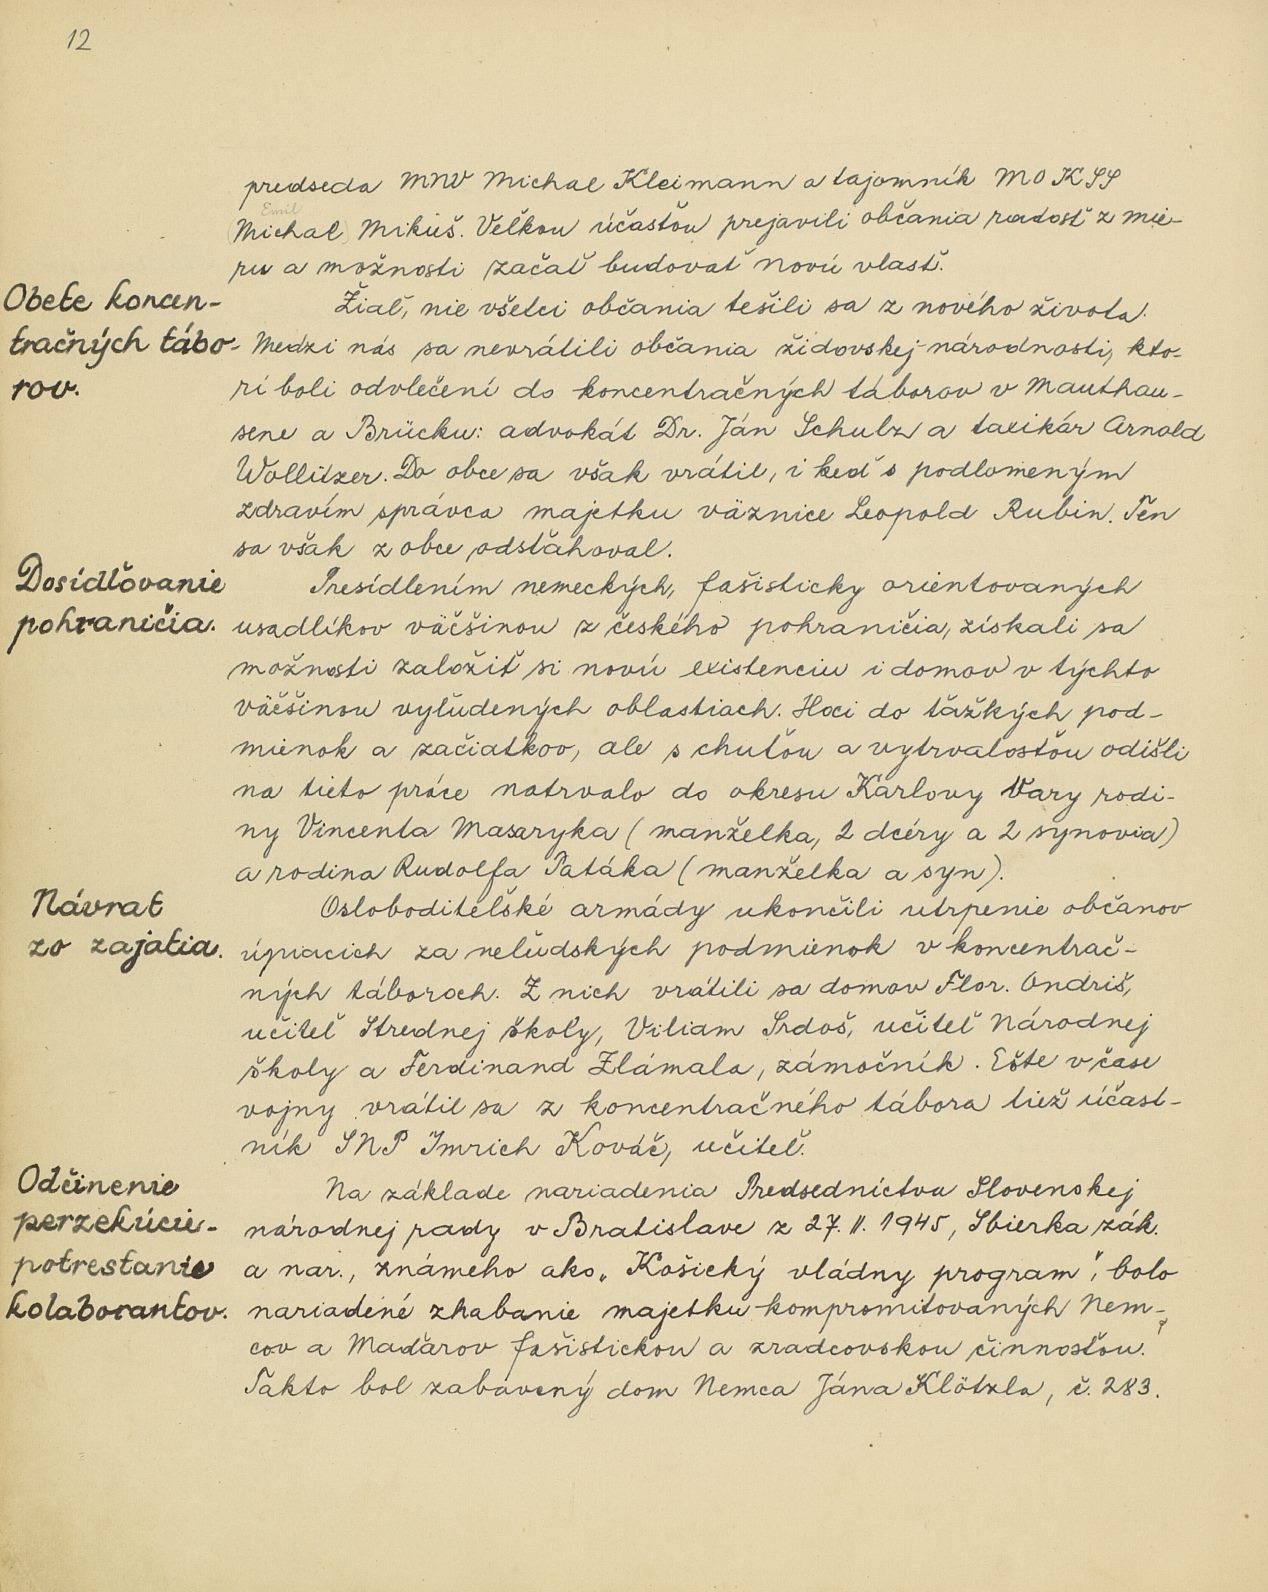 12
predseda MNV Michal Kleimann a tajomník MO KSS
Emil
(Michal) Mikuš. Veľkou účasťou prejavili občania radosť z mie-
ru a možnosti začať budovať novú vlasť.
Obete koncen-
tračných tábo-
rov.
Žiaľ, nie všetci občania tešili sa z nového života.
Medzi nás sa nevrátili občania židovskej národnosti, kto-
rí boli odvlečení do koncentračných táborov v Mauthau-
sene a Brücku: advokát Dr. Ján Schulz a taxikár Arnold
Wollitzer. Do obce sa však vrátil, i keď s podlomeným
zdravím správca majetku väznice Leopold Rubin. Ten
sa však z obce odsťahoval.
Dosídľovanie
pohraničia.
Presídlením nemeckých, fašisticky orientovaných
usadlíkov väčšinou z českého pohraničia, získali sa
možnosti založiť si novú existenciu i domov v týchto
väčšinou vyľudených oblastiach. Hoci do ťažkých pod-
mienok a začiatkov, ale s chuťou a vytrvalosťou odišli
na tieto práce natrvalo do okresu Karlovy Vary rodi-
ny Vincenta Masaryka (manželka, 2 dcéry a 2 synovia)
a rodina Rudolfa Patáka (manželka a syn).
Návrat
zo zajatia.
Osloboditeľské armády ukončili utrpenie občanov
úpiacich za neľudských podmienok v koncentrač-
ných táboroch. Z nich vrátili sa domov Flor. Ondriš,
učiteľ Strednej školy, Viliam Srdoš, učiteľ Národnej
školy a Ferdinand Zlámala, zámočník. Ešte v čase
vojny vrátil sa z koncentračného tábora tiež účast-
ník SNP Imrich Kováč, učiteľ.
Odčinenie
perzekúcie-
potrestanie
kolaborantov.
Na základe nariadenia Predsedníctva Slovenskej
národnej rady v Bratislave z 27. II. 1945, Sbierka zák.
a nar., známeho ako „Košický vládny program“, bolo
nariadené zhabanie majetku kompromitovaných Nem-
cov a Maďarov fašistickou a zradcovskou činnosťou.
Takto bol zabavený dom Nemca Jána Klötzla, č. 283.